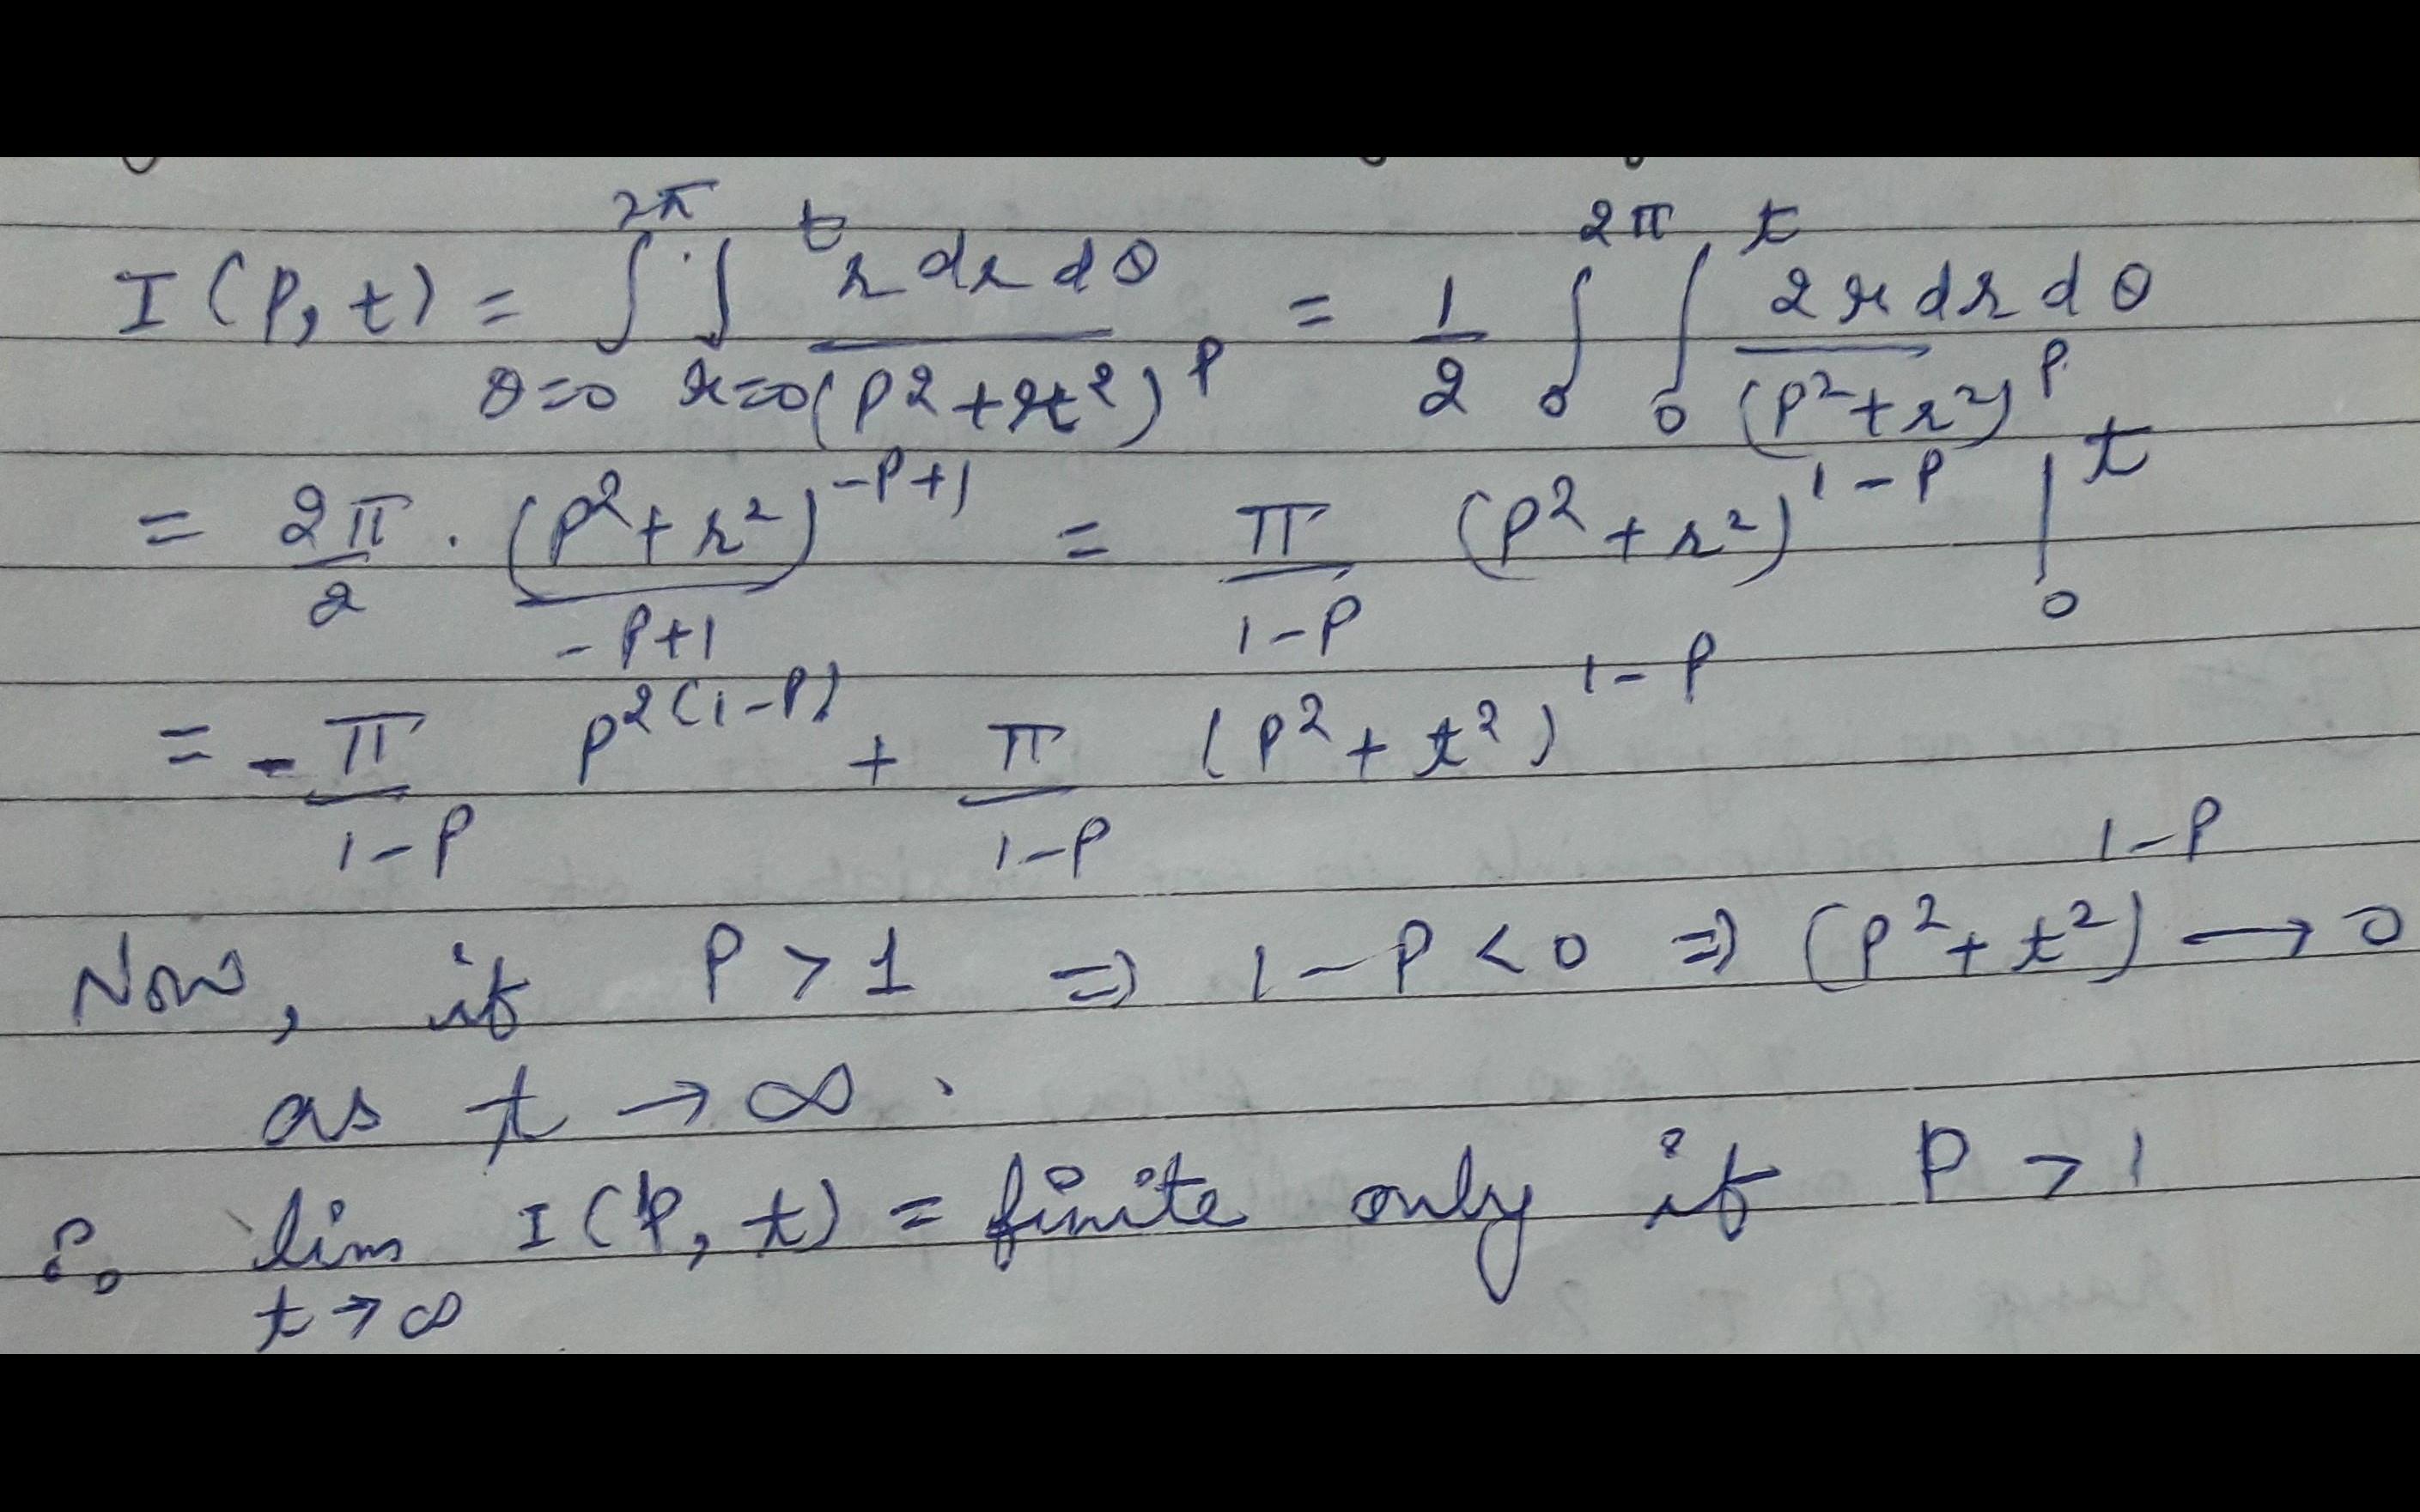 I(p,t) = ∫_{θ=0}^{2π} ∫_{r=0}^{t} r dr dθ / (p² + r²)^p = 1/2 ∫_0^{2π} ∫_0^t 2r dr dθ / (p² + r²)^p
= 2π/2 · (p² + r²)^{-p+1} / -p+1 = π/1-p (p² + r²)^{1-p} |_0^t
= -π/1-p p^{2(1-p)} + π/1-p (p² + t²)^{1-p}
Now, if p > 1 ⇒ 1-p < 0 ⇒ (p² + t²)^{1-p} → 0
as t → ∞.
∴ lim_{t→∞} I(p,t) = finite only if p > 1